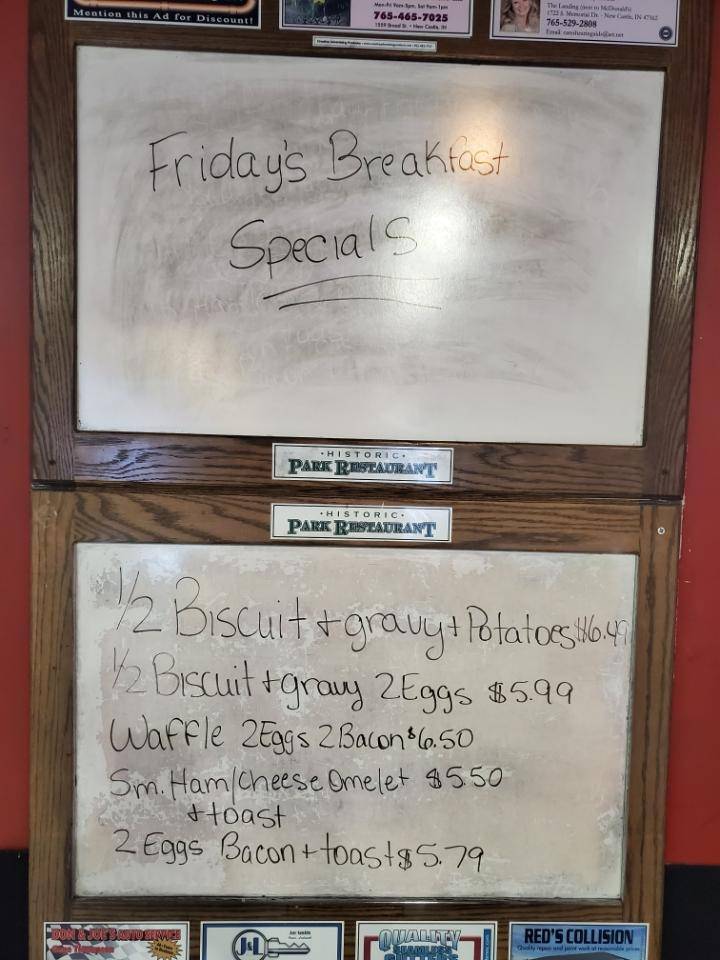 Mention this Ad for Discount!
765-465-7025
1559 Broad St. • New Castle, IN
The Landing (next to McDonald's)
1722 S. Memorial Dr. • New Castle, IN 47362
765-529-2808
Friday's Breakfast
Specials
•HISTORIC•
PARK RESTAURANT
•HISTORIC•
PARK RESTAURANT
1/2 Biscuit + gravy + Potatoes $6.49
1/2 Biscuit + gravy 2 Eggs $5.99
Waffle 2 Eggs 2 Bacon $6.50
Sm. Ham/Cheese Omelet $5.50
+ toast
2 Eggs Bacon + toast $5.79
DON & JOE'S AUTO SERVICE
J&L
QUALITY
SEAMLESS
GUTTERS
RED'S COLLISION
Quality repair and paint work at reasonable prices